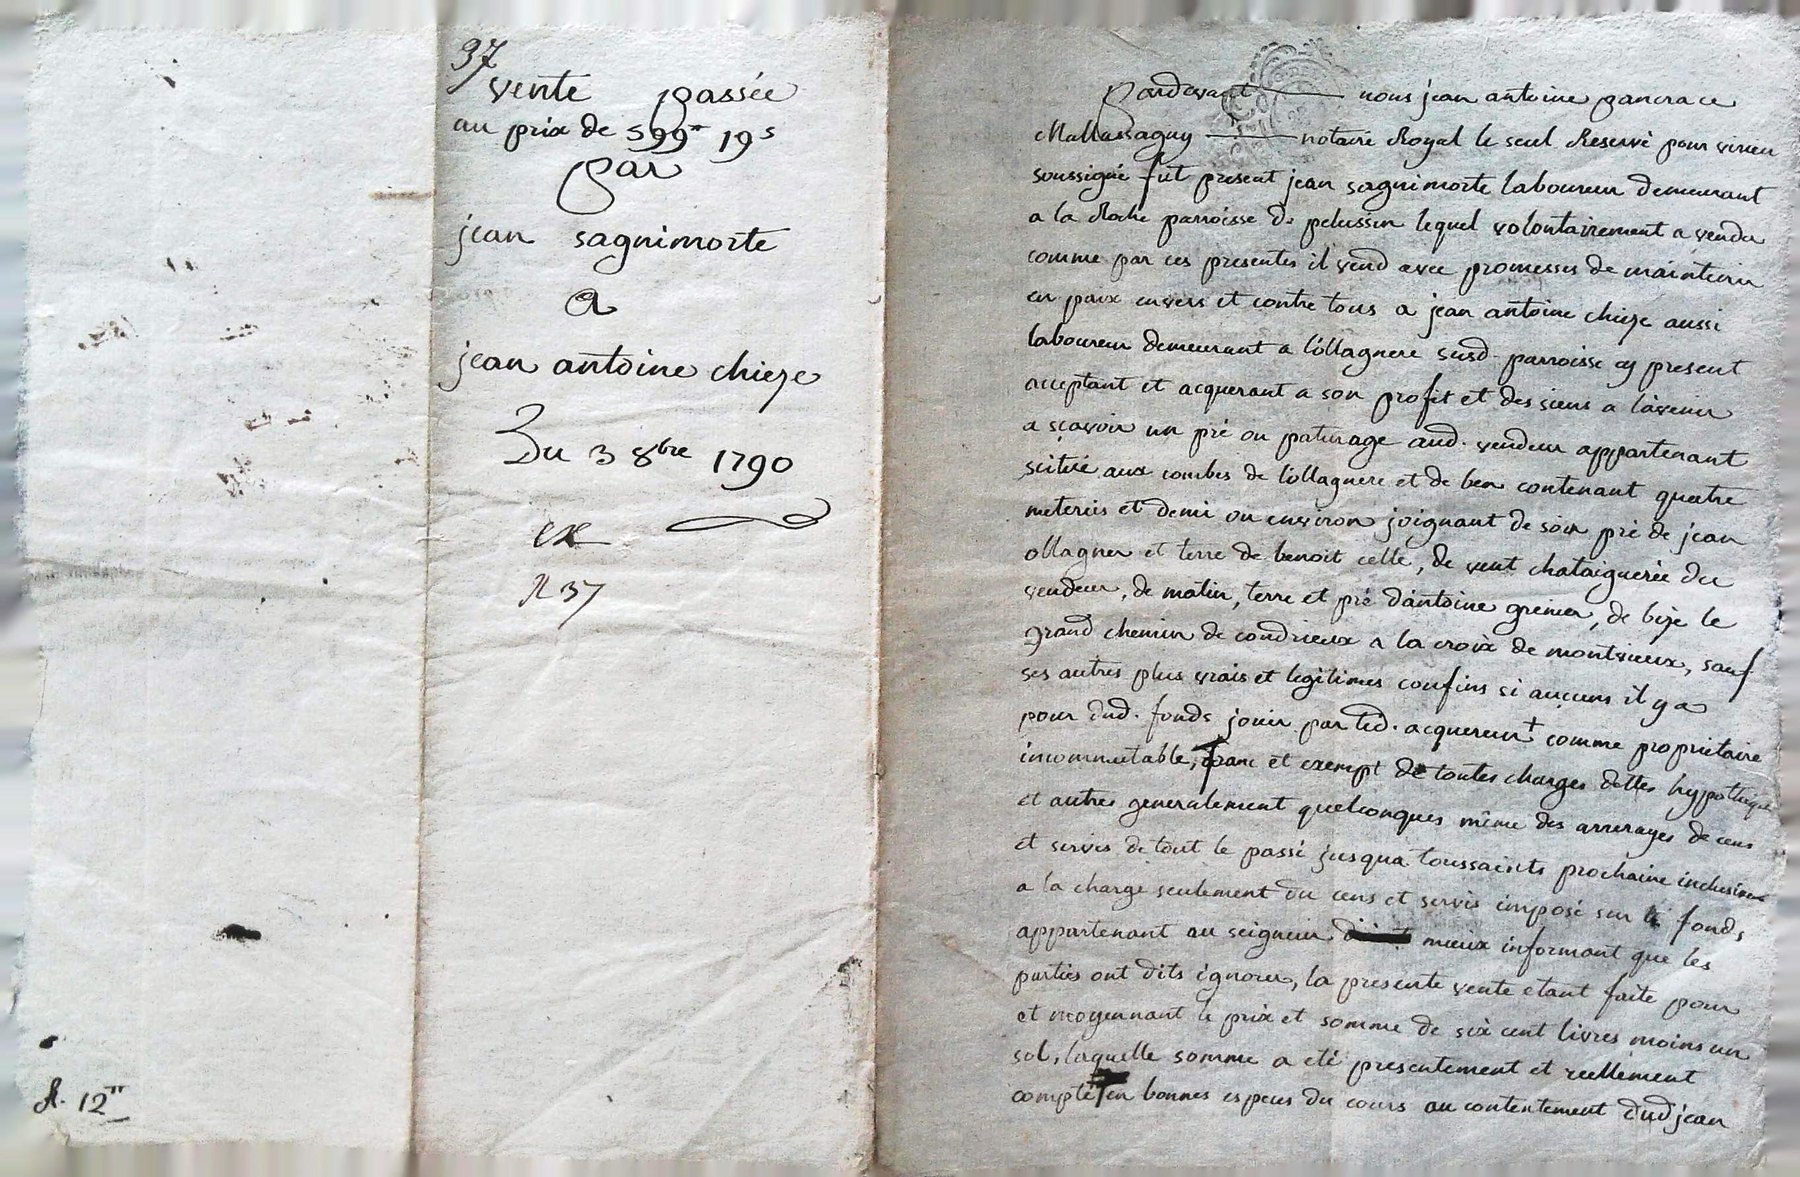 37
vente passée
au prix de 599# 19s
par
jean sagnimorte
a
jean antoine chieze
Du 3 8bre 1790
ex
R 37
R. 12#
Pardevant nous jean antoine pancrace
Mallassagny notaire Royal le seul Reservé pour virieu
soussigné fut present jean sagnimorte laboureur demeurant
a la Roche parroisse de pelussin lequel volontairement a vendu
comme par ces presentes il vend avec promesses de maintenir
en paix envers et contre tous a jean antoine chieze aussi
laboureur demeurant a l'ollagnere susd. parroisse cy present
acceptant et acquerant a son profit et des siens a l'avenir
a sçavoir un pré ou paturage aud. vendeur appartenant
scitué aux combes de l'ollagnere et de ben contenant quatre
meterées et demi ou environ joignant de soir pré de jean
ollagner et terre de benoit celle, de vent chataigneriée du
vendeur, de matin, terre et pré d'antoine grenier, de bize le
grand chemin de condrieux a la croix de montvieux, sauf
ses autres plus vrais et legitimes confins si aucuns il y a
pour dud. fonds jouir par led. acquereur + comme proprietaire
incommutable, franc et exempt de toutes charges dettes hypotheques
et autres generalement quelconques même des arrerages de cens
et servis de tout le passé jusqua toussaints prochaine inclusivement
a la charge seulement du cens et servis imposé sur le fonds
appartenant au seigneur mieux informant que les
parties ont dits ignorer, la presente vente etant faite pour
et moyennant le prix et somme de six cent livres moins un
sol, laquelle somme a eté presentement et reellement
compté en bonnes especes du cours au contentement dud jean